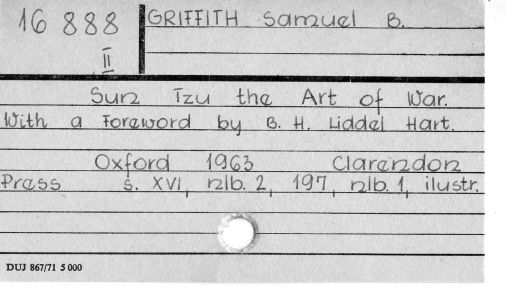 16 888 GRIFFITH Samuel B.
II
Sun Tzu the Art of War.
With a Foreword by B. H. Liddel Hart.
Oxford 1963 Clarendon
Press s. XVI, nlb. 2, 197, nlb. 1, ilustr.
DUJ 867/71 5 000